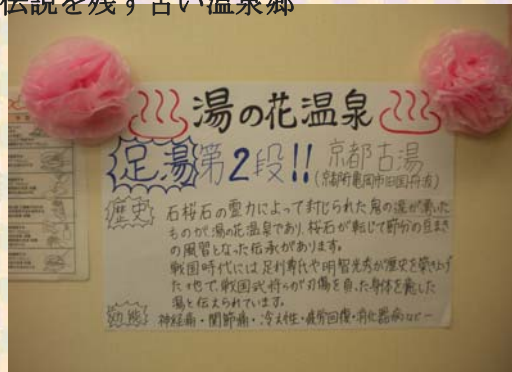 伝説を残す古い温泉郷
湯の花温泉
足湯第2段!! 京都古湯
(京都府亀岡市旧国丹波)
歴史 石桜石の霊力によって封じられた鬼の涙が湧いた
ものが湯の花温泉であり、桜石が転じて節分の豆まき
の風習となった伝承があります。
戦国時代には足利尊氏や明智光秀が歴史を築き上げ
た地で、戦国武将らが刀傷を負った身体を癒した
湯と伝えられています。
効能 神経痛・関節痛・冷え性・疲労回復・消化器病など